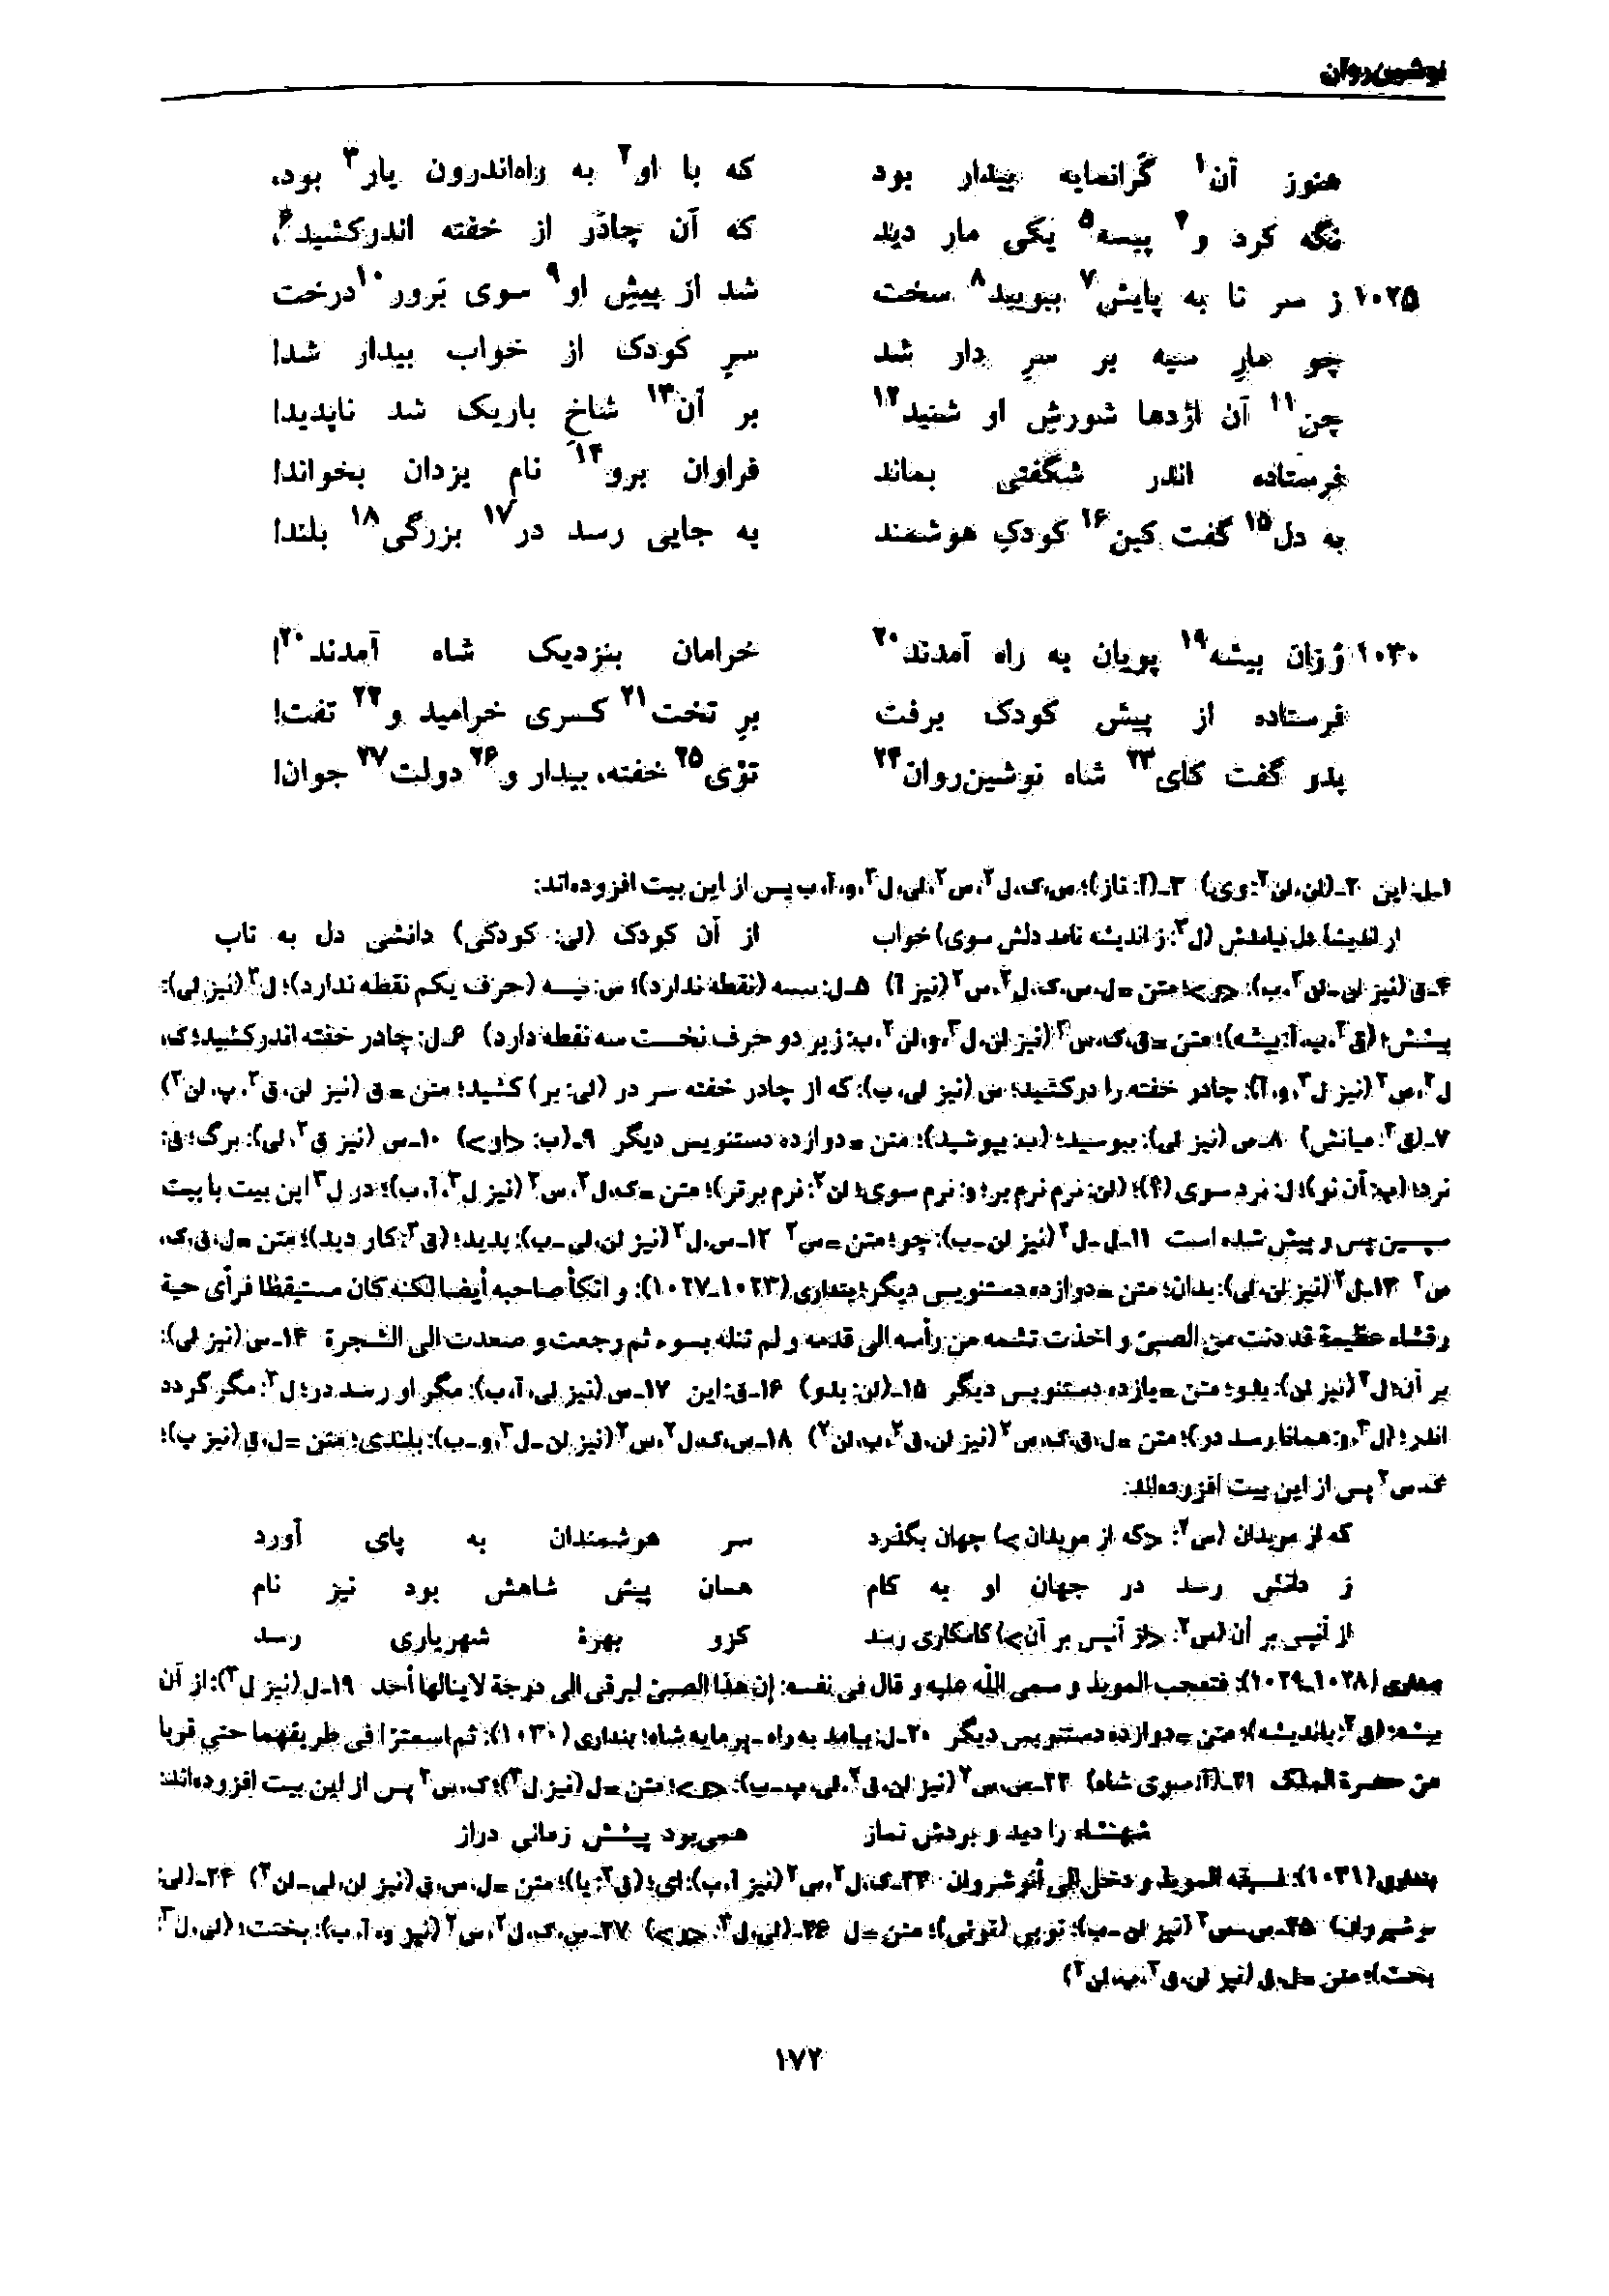 نوشین‌روان
هنوز آن۱ گرانمایه بیدار بود که با او۲ به راه‌اندرون یار۳ بود،
نگه کرد و۴ پیسه۵ یکی مار دید که آن چادَر از خفته اندرکشید۶،
۱۰۲۵ ز سر تا به پایش۷ ببویید۸ سخت شد از پیشِ او۹ سوی بَرور۱۰ درخت
چو مارِ سیه بر سرِ دار شد سرِ کودک از خواب بیدار شد!
چن۱۱ آن اژدها شورشِ او شنید۱۲ بر آن۱۳ شاخِ باریک شد ناپدید!
فرستاده اندر شگفتی بماند فراوان برو۱۴ نام یزدان بخواند!
به دل۱۵ گفت کین۱۶ کودکِ هوشمند به جایی رسد در۱۷ بزرگی۱۸ بلند!
۱۰۳۰ وُزان بیشه۱۹ پویان به راه آمدند۲۰ خرامان بنزدیک شاه آمدند۲۰!
فرستاده از پیش کودک برفت برِ تخت۲۱ کسری خرامید و۲۲ تفت!
بدو گفت کای۲۳ شاه نوشین‌روان۲۴ تؤی۲۵ خفته، بیدار و۲۶ دولت۲۷ جوان!
۱ـ ل: این ۲ـ (لن، لن۲: وی) ۳ـ (آ: تاز)؛ س، ک، ل۲، س۲، لی، ل۳، و، آ، ب پس از این بیت افزوده‌اند:
از اندیشهٔ دل نیامدش (ل۳: ز اندیشه نامد دلش سوی) خواب از آن کودک (لی: کودکی) دانشی دل به تاب
۴ـ ق (نیز لن ـ لن۲، ب): <و>؛ متن = ل، س، ک، ل۲، س۲ (نیز آ) ۵ـ ل: سسه (نقطه ندارد)؛ س: یسه (حرف یکم نقطه ندارد)؛ ل۲ (نیز لی):
پیشش؛ (ق۲، پ، آ: بیشه)؛ متن = ق، ک، س۲ (نیز لن، ل۳، و، لن۲، ب: زیر دو حرف نخست سه نقطه دارد) ۶ـ ل: چادر خفته اندرکشید؛ ک،
ل۲، س۲ (نیز ل۳، و، آ): چادر خفته را درکشید؛ س (نیز لی، ب): که از چادر خفته سر در (لی: بر) کشید؛ متن = ق (نیز لن، ق۲، پ، لن۲)
۷ـ (ق۲: میانش) ۸ـ س (نیز لی): ببوسید؛ (ب: بپوشید)؛ متن = دوازده دستنویس دیگر ۹ـ (ب: <او>) ۱۰ـ س (نیز ق۲، لی): برگ؛ ق:
نرد؛ (پ: آن نو)؛ ل: نرد سوی (؟)؛ (لن: نرم نرم بر؛ و: نرم سوی؛ لن۲: نرم برتر)؛ متن = ک، ل۲، س۲ (نیز ل۳، آ، ب)؛ در ل۳ این بیت با بیت
سپسین پس و پیش شده است ۱۱ـ ل ـ ل۲ (نیز لن ـ ب): چو؛ متن = س۲ ۱۲ـ س، ل۲ (نیز لن، لی ـ ب): بدید؛ (ق۲: کار دید)؛ متن = ل، ق، ک،
س۲ ۱۳ـ ل۲ (نیز لن، لی): بدان؛ متن = دوازده دستنویس دیگر؛ بنداری (۱۰۲۳ـ۱۰۲۷): و اتکأ صاحبه أیضا لکنه کان مستیقظا فرأی حیة
رقشاء عظیمة قد دنت من الصبیّ و اخذت تشمه من رأسه الی قدمه و لم تنله بسوء ثم رجعت و صعدت الی الشجرة ۱۴ـ س (نیز لی):
بر آن؛ ل۲ (نیز لن): بدو؛ متن = یازده دستنویس دیگر ۱۵ـ (لن: بدو) ۱۶ـ ق: این ۱۷ـ س (نیز لی، آ، ب): مگر او رسد در؛ ل۲: مگر گردد
اندر؛ (ل۳، و: همانا رسد در)؛ متن = ل، ق، ک، س۲ (نیز لن، ق۲، پ، لن۲) ۱۸ـ س، ک، ل۲، س۲ (نیز لن ـ ل۳، و ـ ب): بلندی؛ متن = ل، ق (نیز پ)؛
ک، س۲ پس از این بیت افزوده‌اند:
که از موبدان (س۲: <که از موبدان>) جهان بگذرد سر هوشمندان به پای آورد
ز دانش رسد در جهان او به کام همان پیش شاهش بود نیز نام
از آنپس بر آن (س۲: <از آنپس بر آن>) کامکاری رسد کزو بهرهٔ شهریاری رسد
بنداری (۱۰۲۸ـ۱۰۲۹): فتعجب الموبذ و سمی الله علیه و قال فی نفسه: إن هذا الصبیّ لیرقی الی درجة لاینالها أحد ۱۹ـ ل (نیز ل۳): از آن
بیشه؛ (ق۲: باندیشه)؛ متن = دوازده دستنویس دیگر ۲۰ـ ل: بیامد به راه ـ پرمایه شاه؛ بنداری (۱۰۳۰): ثم استمرّا فی طریقهما حتی قربا
من حضرة الملک ۲۱ـ (آ: سوی شاه) ۲۲ـ س، س۲ (نیز لن، ق۲، لی، پ ـ ب): <و>؛ متن = ل (نیز ل۳)؛ ک، س۲ پس از این بیت افزوده‌اند:
شهنشاه را دید و بردش نماز همی‌بود پیشش زمانی دراز
بنداری (۱۰۳۱): فسبقه الموبذ و دخل إلی أنوشروان ۲۳ـ ک، ل۲، س۲ (نیز آ، ب): ای؛ (ق۲: یا)؛ متن = ل، س، ق (نیز لن، لی ـ لن۲) ۲۴ـ (لی:
نوشیروان) ۲۵ـ س ـ س۲ (نیز لن ـ ب): تویی (توئی)؛ متن = ل ۲۶ـ (لی، ل۳: <و>) ۲۷ـ س، ک، ل۲، س۲ (نیز و، آ، ب): بختت؛ (لی، ل۳:
بخت)؛ متن = ل، ق (نیز لن، ق۲، پ، لن۲)
۱۷۲